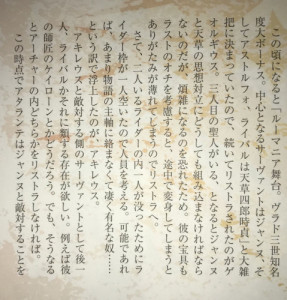 この頃になると「ルーマニア舞台。ヴラド三世知名
度大ボーナス。中心となるサーヴァントはジャンヌ、そ
してアストルフォ、ライバルは天草四郎時貞」と大雑
把に決まっていたので、続いてリストラされたのがゲ
オルギウス。三人目の聖人がいる、となるとジャンヌ
と天草の思想対立にどうしても組み込まなければなら
ないのだが、煩雑になるのを恐れたため。彼の宝具も
ラストのオチを考慮すると、途中で変身してしまうと
ありがたみが薄れてしまうのでリストラへ。
さて、二人いるライダーの内一人が没ったためにラ
イダー枠が一人空いたので人員を考える。可能であれ
ば、あまり物語の主軸に絡まなくて凄く有名な奴……
という訳で浮上したのが、アキレウス。
アキレウスと敵対する側のサーヴァントとして後一
人、ライバルかそれに類する存在が欲しい。例えば彼
の師匠のケイローンとかどうだろう。でも、そうなる
とアーチャーの内どちらかをリストラしなければ。
この時点でアタランテはジャンヌと敵対することを